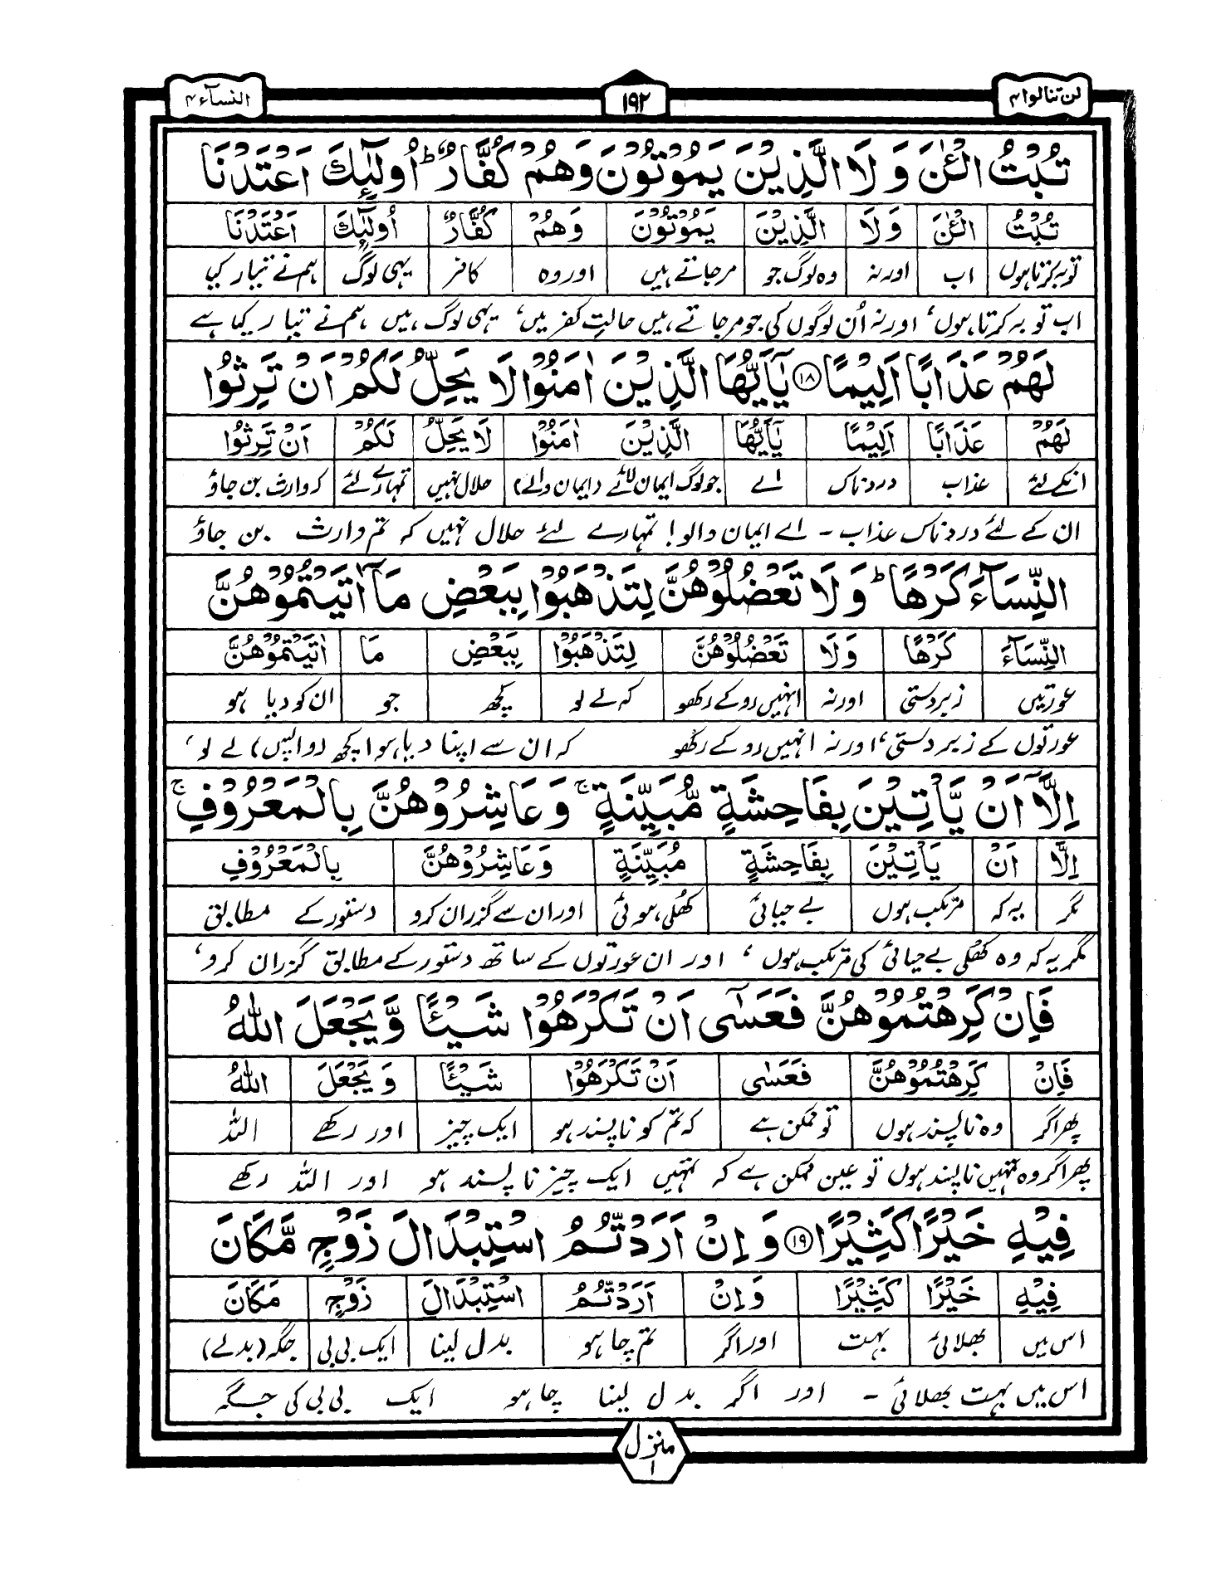 لن تنالوا ۴
۱۹۲
النسآء ۴
تُبْتُ الْـٰٔنَ وَ لَا الَّذِيْنَ يَمُوْتُوْنَ وَهُمْ كُفَّارٌ ؕ اُولٰٓئِكَ اَعْتَدْنَا
تُبْتُ الْـٰٔنَ وَلَا الَّذِيْنَ يَمُوْتُوْنَ وَهُمْ كُفَّارٌ اُولٰٓئِكَ اَعْتَدْنَا
توبہ کرتا ہوں اب اور نہ وہ لوگ جو مرجاتے ہیں اور وہ کافر یہی لوگ ہم نے تیار کیا
اب توبہ کرتا ہوں، اور نہ اُن لوگوں کی جو مرجاتے ہیں حالتِ کفر میں، یہی لوگ ہیں ہم نے تیار کیا ہے
لَهُمْ عَذَابًا اَلِيْمًا ﴿۱۸﴾ يٰۤاَيُّهَا الَّذِيْنَ اٰمَنُوْا لَا يَحِلُّ لَكُمْ اَنْ تَرِثُوا
لَهُمْ عَذَابًا اَلِيْمًا يٰۤاَيُّهَا الَّذِيْنَ اٰمَنُوْا لَا يَحِلُّ لَكُمْ اَنْ تَرِثُوا
انکے لئے عذاب دردناک اے جو لوگ ایمان لائے (ایمان والے) حلال نہیں تمہارے لئے کہ وارث بن جاؤ
ان کے لئے دردناک عذاب - اے ایمان والو! تمہارے لئے حلال نہیں کہ تم وارث بن جاؤ
النِّسَآءَ كَرْهًا ؕ وَ لَا تَعْضُلُوْهُنَّ لِتَذْهَبُوْا بِبَعْضِ مَاۤ اٰتَيْتُمُوْهُنَّ
النِّسَآءَ كَرْهًا وَلَا تَعْضُلُوْهُنَّ لِتَذْهَبُوْا بِبَعْضِ مَا اٰتَيْتُمُوْهُنَّ
عورتیں زبردستی اور نہ انہیں روکے رکھو کہ لے لو کچھ جو ان کو دیا ہو
عورتوں کے زبردستی، اور نہ انہیں روکے رکھو کہ ان سے اپنا دیا ہوا کچھ (واپس) لے لو،
اِلَّاۤ اَنْ يَّاْتِيْنَ بِفَاحِشَةٍ مُّبَيِّنَةٍ ۚ وَ عَاشِرُوْهُنَّ بِالْمَعْرُوْفِ ۚ
اِلَّا اَنْ يَاْتِيْنَ بِفَاحِشَةٍ مُبَيِّنَةٍ وَعَاشِرُوْهُنَّ بِالْمَعْرُوْفِ
مگر یہ کہ مرتکب ہوں بے حیائی کھلی ہوئی اور ان سے گزران کرو دستور کے مطابق
مگر یہ کہ وہ کھلی بے حیائی کی مرتکب ہوں، اور ان عورتوں کے ساتھ دستور کے مطابق گزران کرو،
فَاِنْ كَرِهْتُمُوْهُنَّ فَعَسٰۤى اَنْ تَكْرَهُوْا شَيْـًٔا وَّ يَجْعَلَ اللّٰهُ
فَاِنْ كَرِهْتُمُوْهُنَّ فَعَسٰى اَنْ تَكْرَهُوْا شَيْـًٔا وَ يَجْعَلَ اللّٰهُ
پھر اگر وہ ناپسند ہوں تو ممکن ہے کہ تم کو ناپسند ہو ایک چیز اور رکھے اللہ
پھر اگر وہ تمہیں ناپسند ہوں تو عین ممکن ہے کہ تمہیں ایک چیز ناپسند ہو اور اللہ رکھے
فِيْهِ خَيْرًا كَثِيْرًا ﴿۱۹﴾ وَ اِنْ اَرَدْتُّمُ اسْتِبْدَالَ زَوْجٍ مَّكَانَ
فِيْهِ خَيْرًا كَثِيْرًا وَ اِنْ اَرَدْتُّمُ اسْتِبْدَالَ زَوْجٍ مَكَانَ
اس میں بھلائی بہت اور اگر تم چاہو بدل لینا ایک بی بی جگہ (بدلے)
اس میں بہت بھلائی - اور اگر بدل لینا چاہو ایک بی بی کی جگہ
منزل ۱